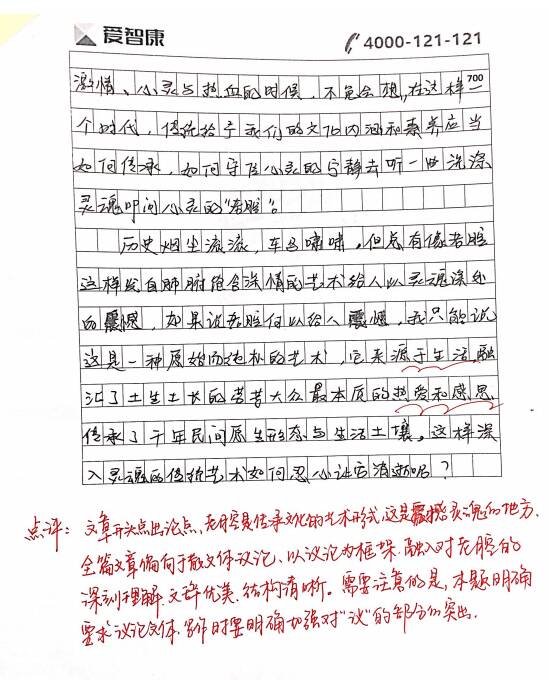 爱智康 4000-121-121
激情、心灵与热血的时候，不免会想，在这样一 700
个时代，传统给予我们的文化内涵和素养应当
如何传承，如何守住心灵的宁静去听一曲洗涤
灵魂叩问心灵的“老腔”。
历史烟尘流淌，车马啸啸，但总有像老腔
这样发自肺腑饱含深情的艺术给人以灵魂深处
的震憾，如果说老腔何以给人震憾，我只能说
这是一种原始而纯朴的艺术，它来源于生活，融
汇了土生土长的劳苦大众最本质的热爱和感恩
传承了千年民间原生形态与生活土壤，这样深
入灵魂的传统艺术如何忍心让它消逝呢？
点评：文章开头点出论点，老腔是传承文化的艺术形式，这是震撼灵魂的地方。
全篇文章偏向于散文体议论，以议论为框架，融入对老腔的
深刻理解，文辞优美，结构清晰。需要注意的是，本题明确
要求议论文体，写作时要明确加强对“议”的部分的突出。